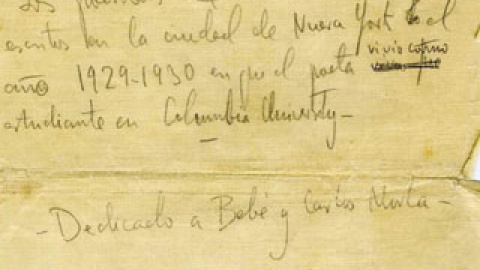 Los poemas
escritos en la ciudad de Nueva York el
año 1929-1930 en que el poeta vivió como
estudiante en Columbia University—
- Dedicado a Bebé y Carlos Morla -